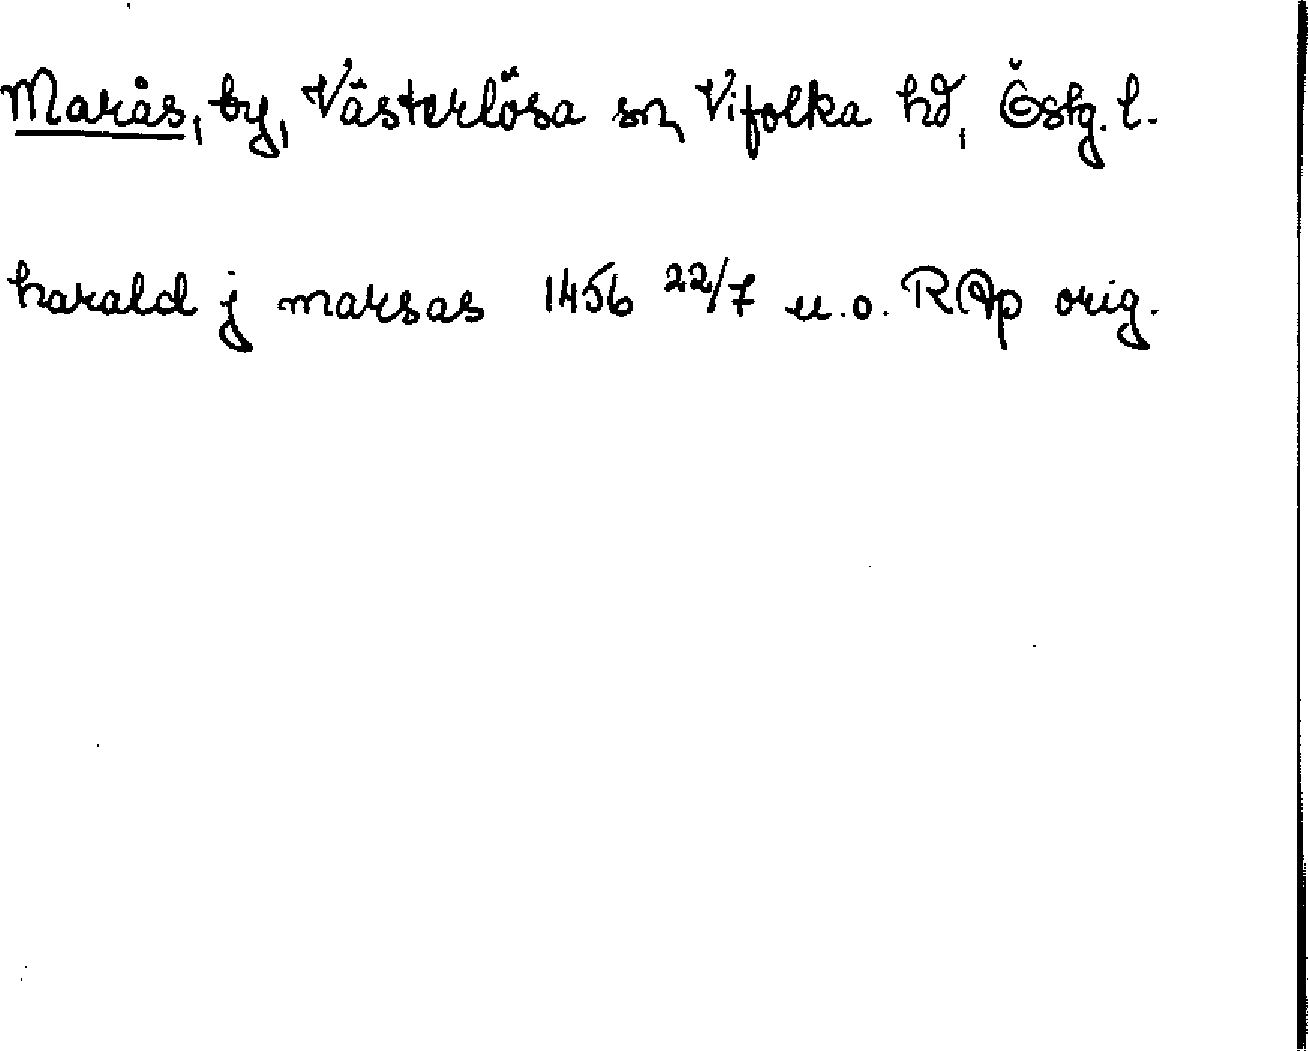 Marås, by, Västerlösa sn, Vifolka hd, Östg. l.
harald j marsas 1456 22/7 u.o. RAp orig.